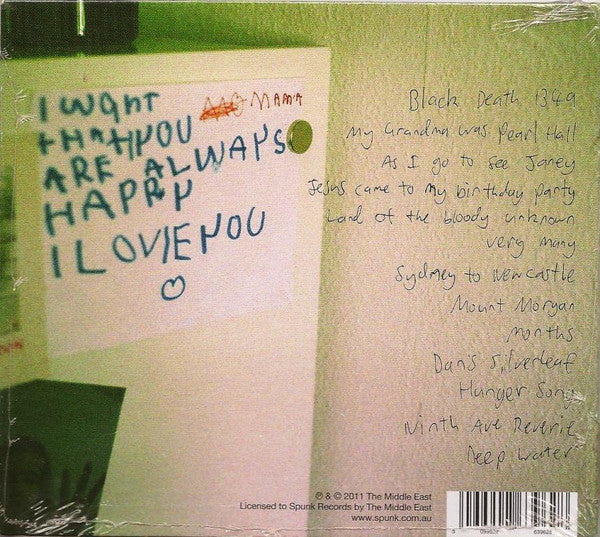 I WANT
THAT YOU
MAMA
ARE ALWAYS
HAPPY
I LOVIE YOU
Black Death 1349
My Grandma was Pearl Hall
As I go to see Janey
Jesus came to my birthday party
Land of the bloody unknown
very many
Sydney to newcastle
Mount Morgan
months
Dan's Silverleaf
Hunger Song
Ninth Ave Reverie
Deep Water
℗ & © 2011 The Middle East
Licensed to Spunk Records by The Middle East
www.spunk.com.au